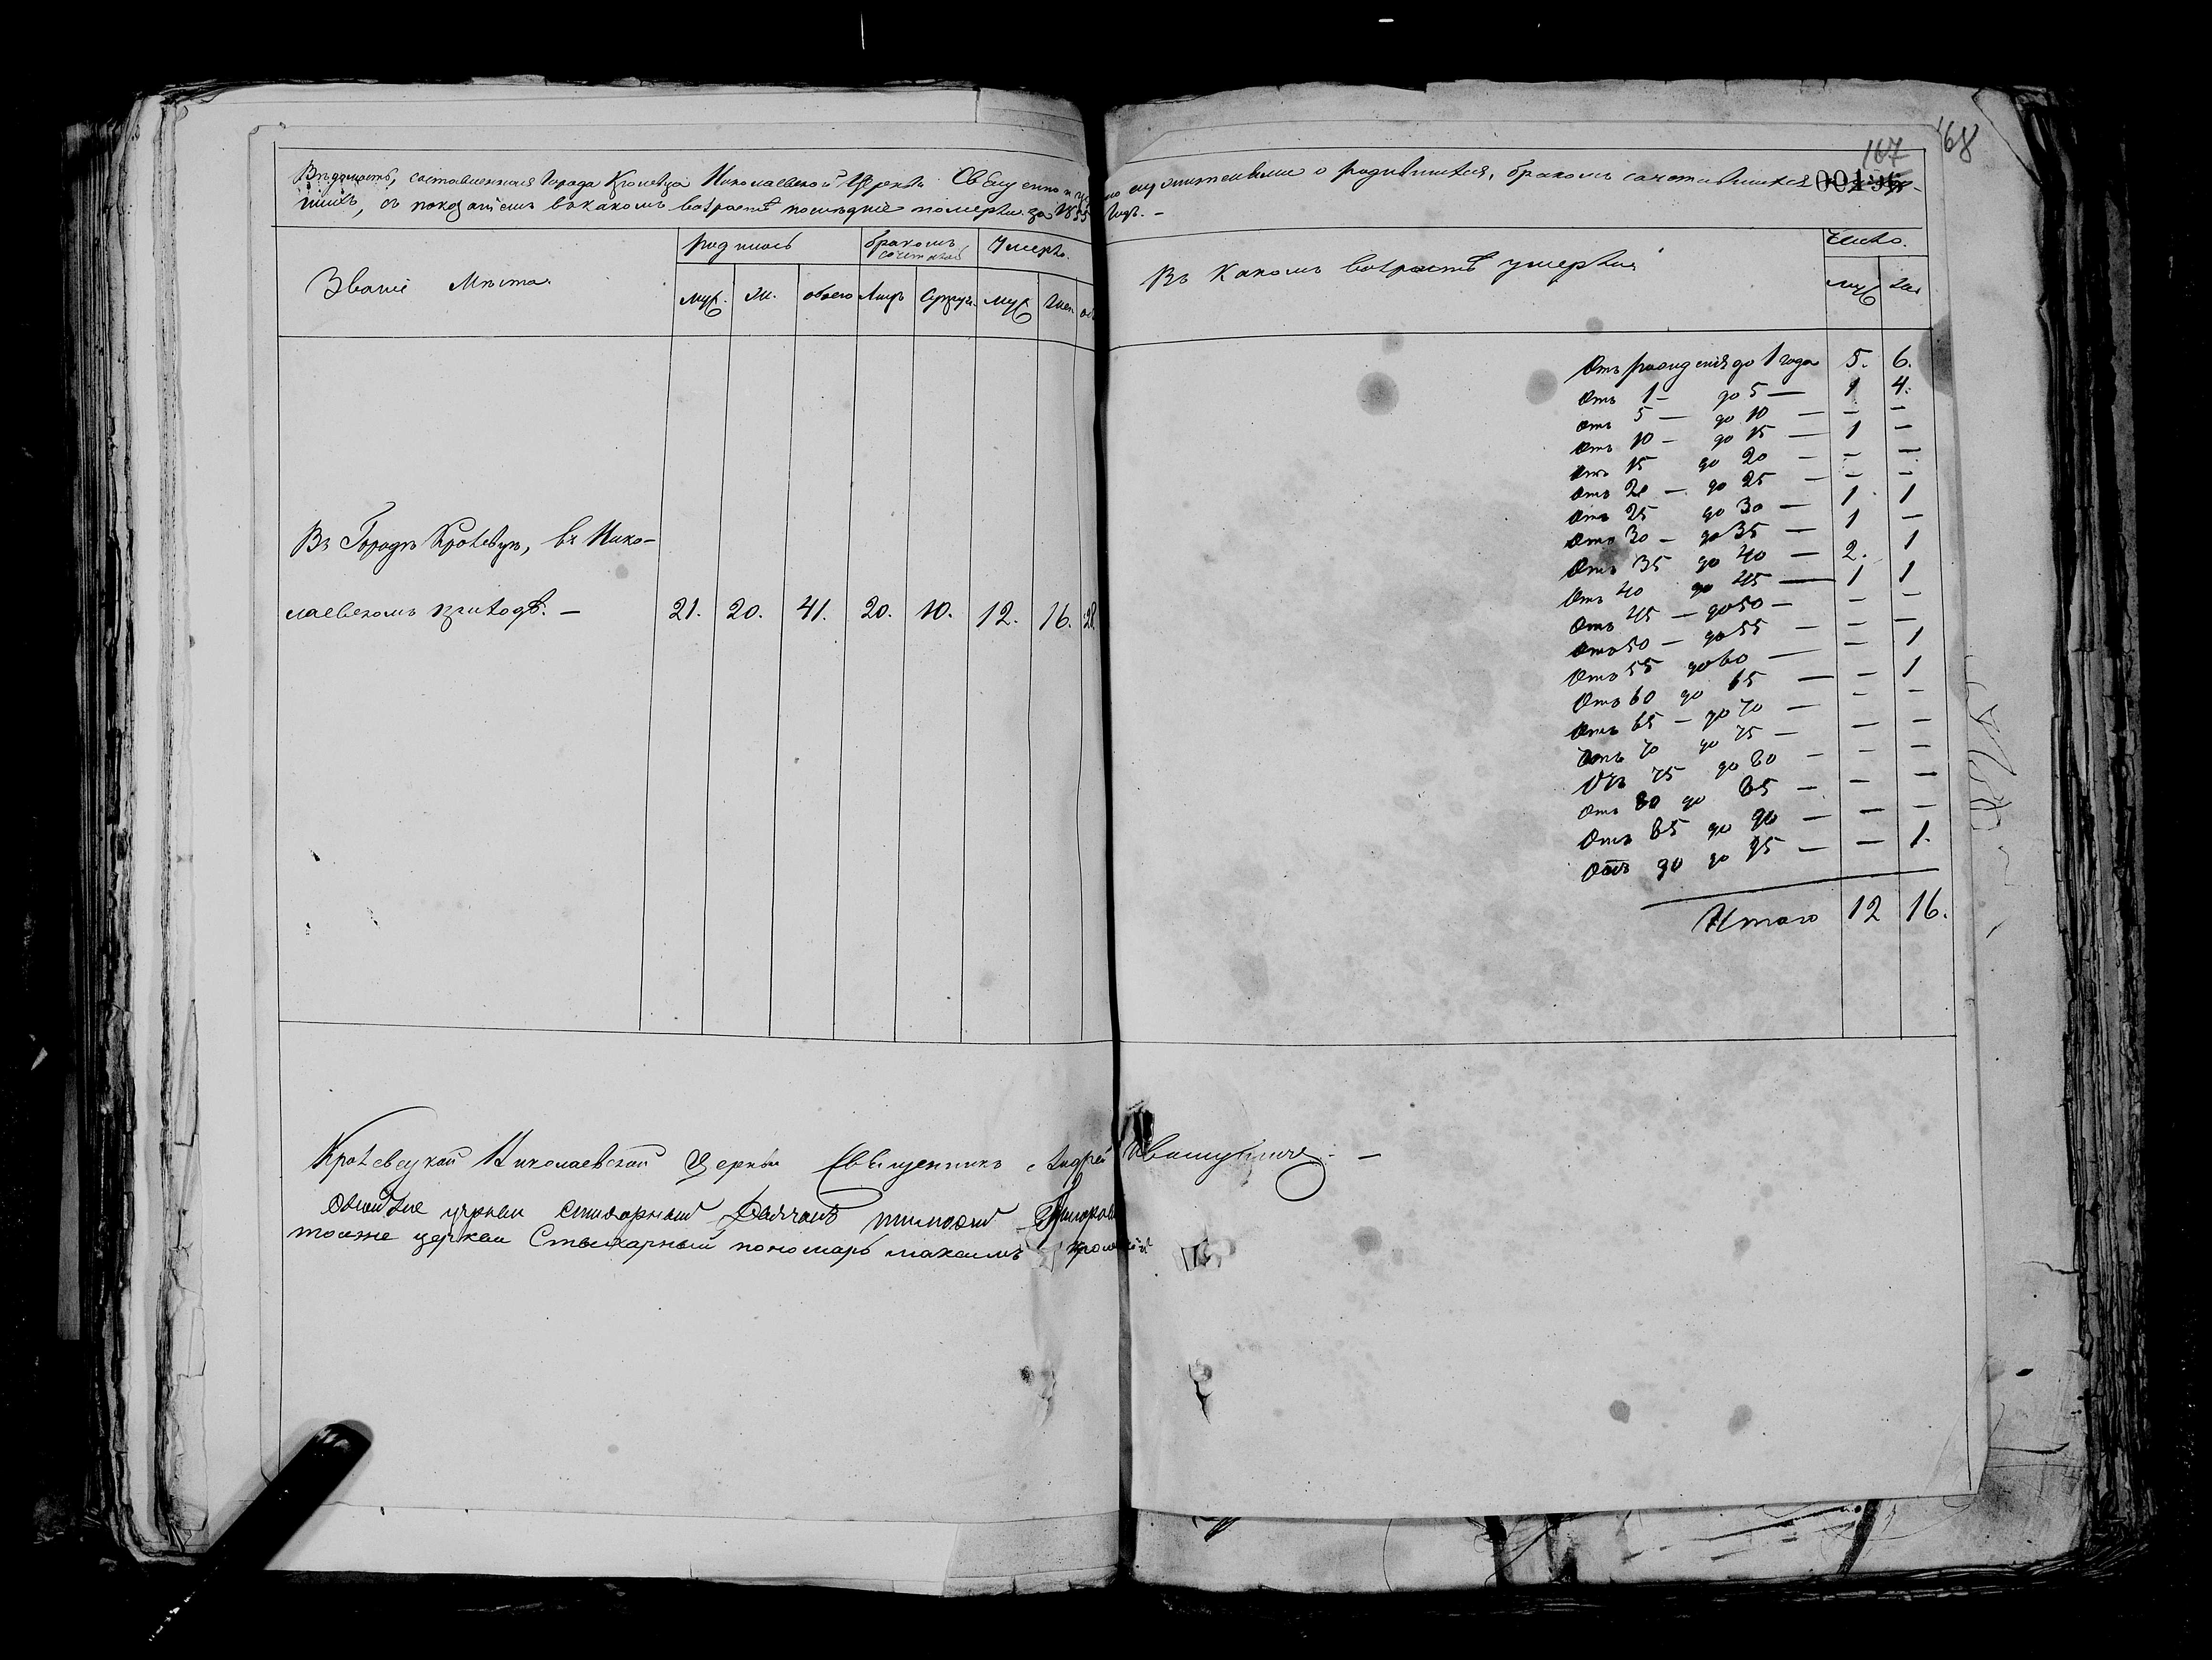 167 168
Вѣдомость, составленная Города Кролевца Николаевской Церкви Священно и це служителями о родившихся, бракомъ сочетавшихся
шихъ, съ показаніемъ въ какомъ возрастѣ послѣдніе померли за 1855 годъ. –
Званіе Мѣста.
родилось
бракомъ сочеталось
Умерло.
муж. Ж. обоего Лицъ Супруж. муж Жен об
Въ Какомъ возрастѣ умерли
Число.
муж жен
Отъ рожденія до 1 года 5. 6.
Отъ 1 – до 5 — 1 4.
отъ 5 — до 10 — – –
Отъ 10 – до 15 — 1 –
Отъ 15 до 20 – – –
Отъ 20 – до 25 – – –
Отъ 25 до 30 – 1 1
Отъ 30 – до 35 – 1 –
Отъ 35 до 40 – 2. 1
Отъ 40 до 45 — 1 1
Отъ 45 – до 50 – – –
Отъ 50 – до 55 – – –
Отъ 55 до 60 — – 1
Отъ 60 до 65 — – 1
Отъ 65 – до 70 – – –
Отъ 70 до 75 – – –
Отъ 75 до 80 – – –
Отъ 80 до 85 – – –
Отъ 85 до 90 – – –
Отъ 90 до 95 – – 1.
Итого 12 16.
Въ Городѣ Кролевцѣ, въ Нико–
лаевскомъ приходѣ. – 21. 20. 41. 20. 10. 12. 16. 28.
Кролевецкой Николаевской Церкви Священникъ Андрей –
церкви стихарный Дьячокъ
тояже церкви Стихарный пономарь